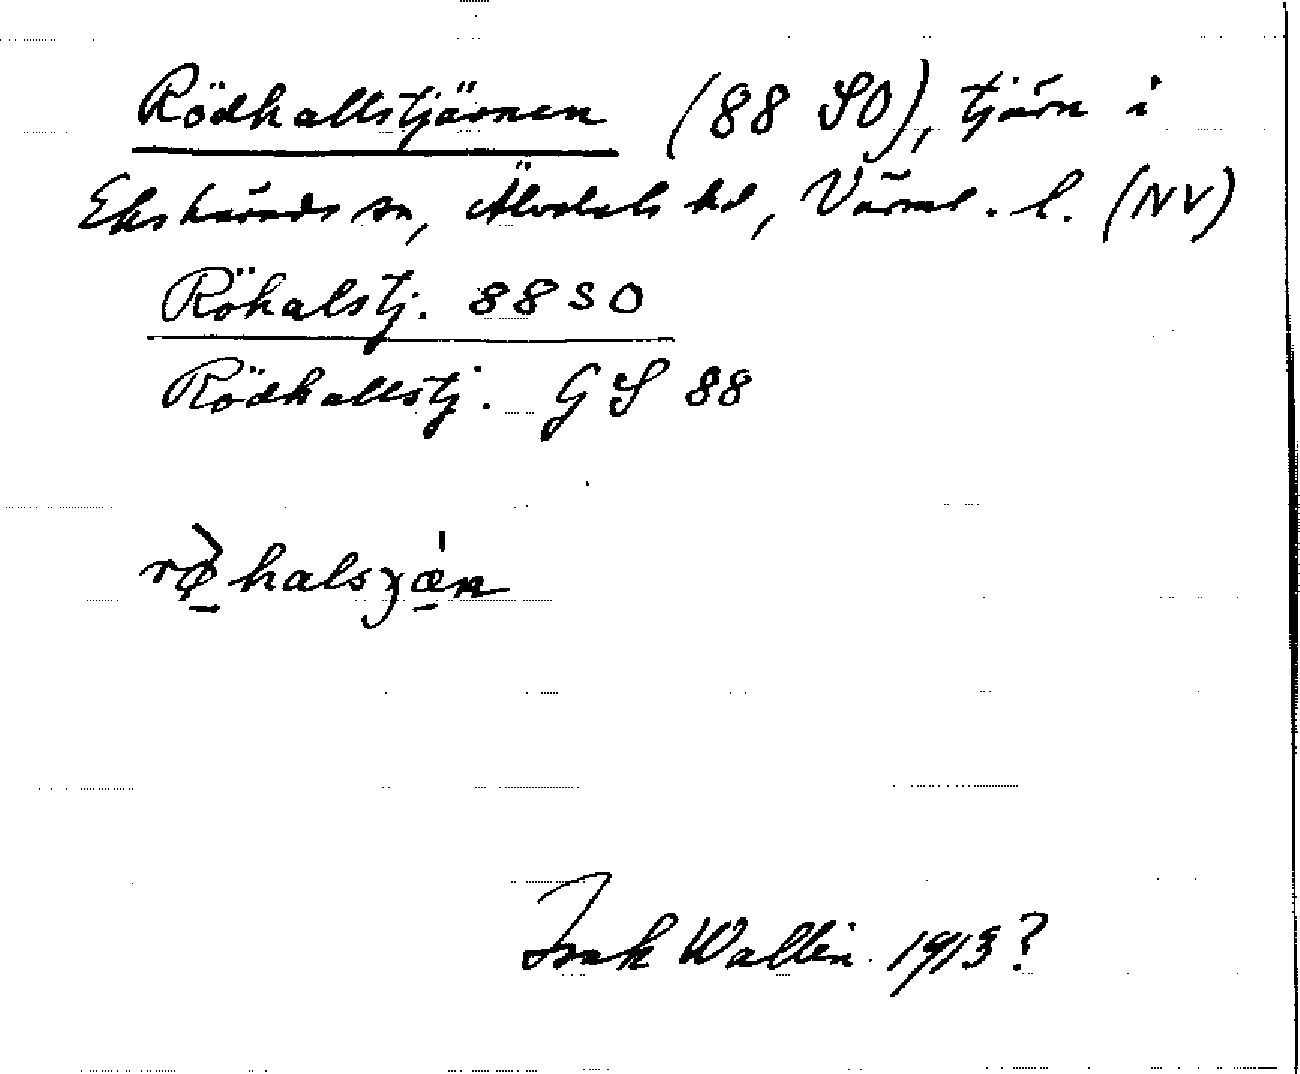 Rödhallstjärnen (88 SO), tjärn i
Ekshärads sn, Älvdals hd, Värml. l. (NV)
Röhalstj. 88 SO
Rödhallstj. GS 88
rø̀halsjæ̍n
Isak Wallin 1913?